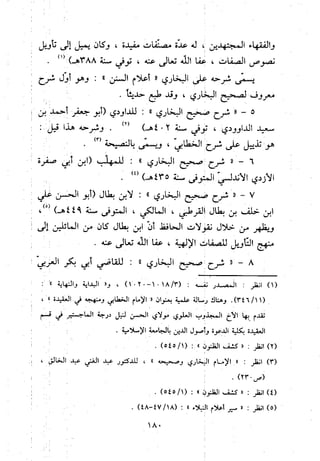 والفقهاء المجتهدين ، له عدة مصنفات مفيدة ، وكان يميل إلى تأويل
نصوص الصفات ، عفا الله تعالى عنه ، توفي سنة ٣٨٨هـ) (١) .
يسمى شرحه على البخاري « أعلام السنن » : وهو أول شرح
معروف لصحيح البخاري ، وقد طبع حديثاً .
٥ - « شرح صحيح البخاري » : للداودي (أبو جعفر أحمد بن
سعيد الداودي ، توفي سنة ٤٠٢هـ) (٢) . وشرحه هذا قيل :
هو تعليق على شرح الخطابي ، ويسمى بالنصيحة (٣) .
٦ - « شرح صحيح البخاري » : للمهلب (ابن أبي صفرة
الأزدي الأندلسي المتوفى سنة ٤٣٥هـ) (٤) .
٧ - « شرح صحيح البخاري » : لابن بطال (أبو الحسن علي
ابن خلف بن بطال القرطبي ، المالكي ، المتوفى سنة ٤٤٩هـ) (٥) ،
ويظهر من خلال تأويلات الحافظ أن ابن بطال كان من المائلين إلى
منهج التأويل لصفات الإلهية ، عفا الله تعالى عنه .
٨ - « شرح صحيح البخاري » : للقاضي أبي بكر ابن العربي
(١) انظر : المصدر نفسه : (١٠١٨/٣-١٠٢٠) ، و« البداية والنهاية » :
(٣٤٦/١١) . وهناك رسالة علمية بعنوان « الإمام الخطابي ومنهجه في العقيدة » ،
تقدم بها الأخ
العقيدة بكلية الدعوة وأصول الدين بالجامعة الإسلامية .
(٢) انظر : « كشف الظنون » : (٥٤٥/١) .
(٣) انظر : « الإمام البخاري وصحيحه » ، للدكتور عبد الغني عبد الخالق ،
(ص٢٣٠) .
(٤) انظر : « كشف الظنون » : (٥٤٥/١) .
(٥) انظر : « سير أعلام النبلاء » : (٤٧/١٨-٤٨) .
١٨٠